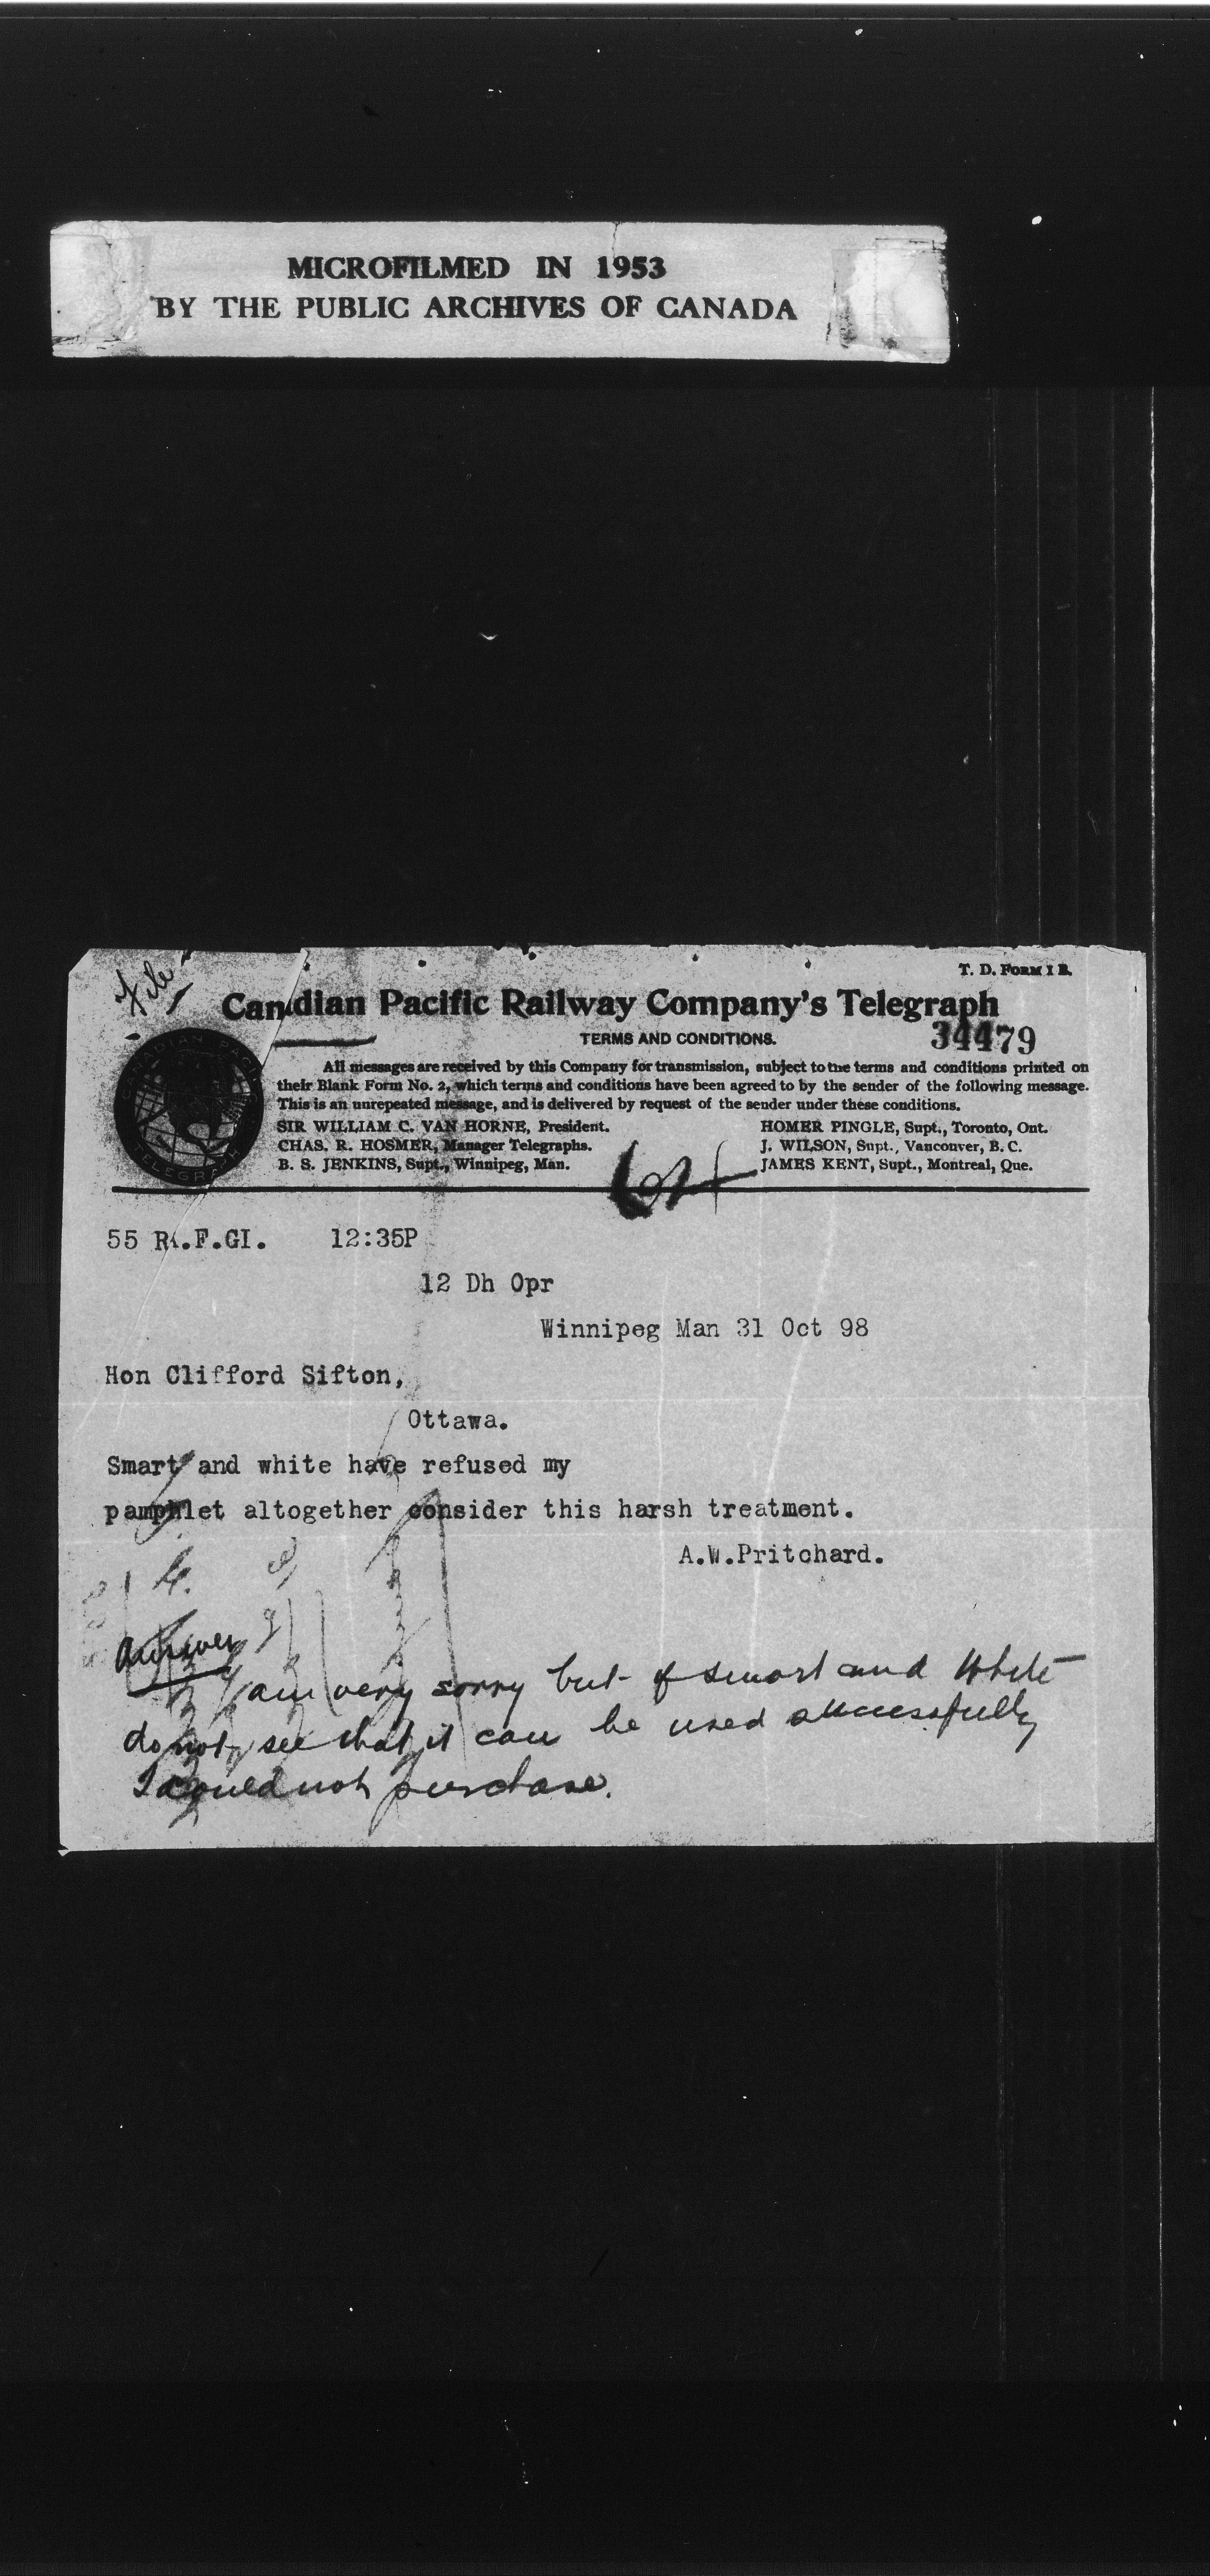 MICROFILMED IN 1953
BY THE PUBLIC ARCHIVES OF CANADA
File
T. D. FORM 1 B.
Canadian Pacific Railway Company's Telegraph
TERMS AND CONDITIONS.
34479
All messages are received by this Company for transmission, subject to the terms and conditions printed on
their Blank Form No. 2, which terms and conditions have been agreed to by the sender of the following message.
This is an unrepeated message, and is delivered by request of the sender under these conditions.
SIR WILLIAM C. VAN HORNE, President.
CHAS. R. HOSMER, Manager Telegraphs.
B. S. JENKINS, Supt., Winnipeg, Man.
HOMER PINGLE, Supt., Toronto, Ont.
J. WILSON, Supt., Vancouver, B. C.
JAMES KENT, Supt., Montreal, Que.
CANADIAN PACIFIC
TELEGRAPH
55 R.F.GI. 12:35P
12 Dh Opr
Winnipeg Man 31 Oct 98
Hon Clifford Sifton,
Ottawa.
Smart and white have refused my
pamphlet altogether consider this harsh treatment.
A.W.Pritchard.
Answer
I am very sorry but if Smart and White
do not see that it can be used successfully
I could not purchase.